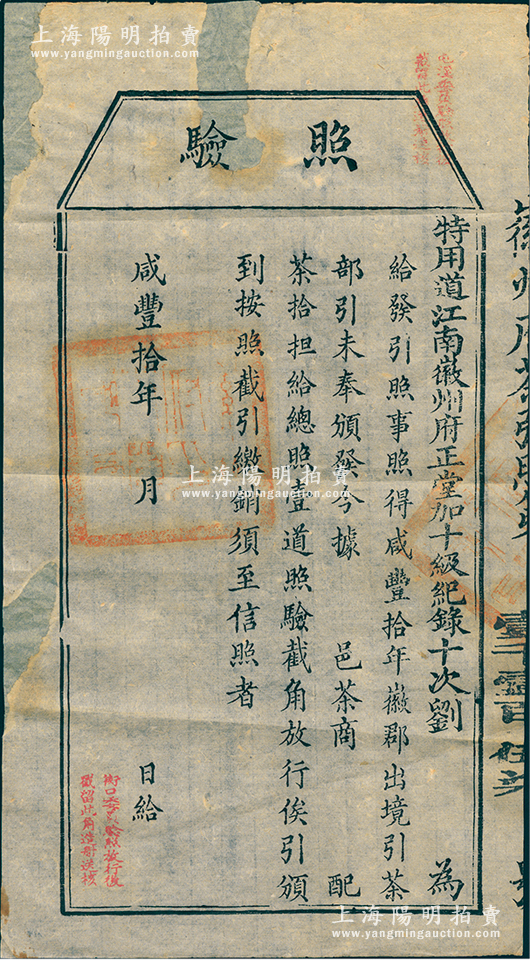 上海陽明拍賣
www.yangmingauction.com
照驗
特用道江南徽州府正堂加十級紀錄十次劉 為
給發引照事照得咸豐拾年徽郡出境引茶
部引未奉頒發今據 邑茶商 配
茶拾担給總照壹道照驗截角放行俟引頒
到按照截引繳銷須至信照者
咸豐拾年 月 日給
街口 驗放行後
截留此角 送核
上海陽明拍賣
www.yangmingauction.com
上海陽明拍賣
www.yangmingauction.com